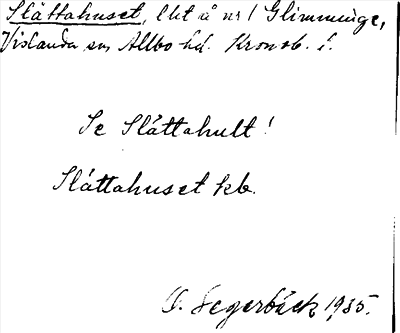 Slättahuset, lht å nr 1 Glimminge,
Vislanda sn, Allbo hd. Kronob. l.
Se Slättahult!
Slättahuset kb.
O. Segerbäck 1935.